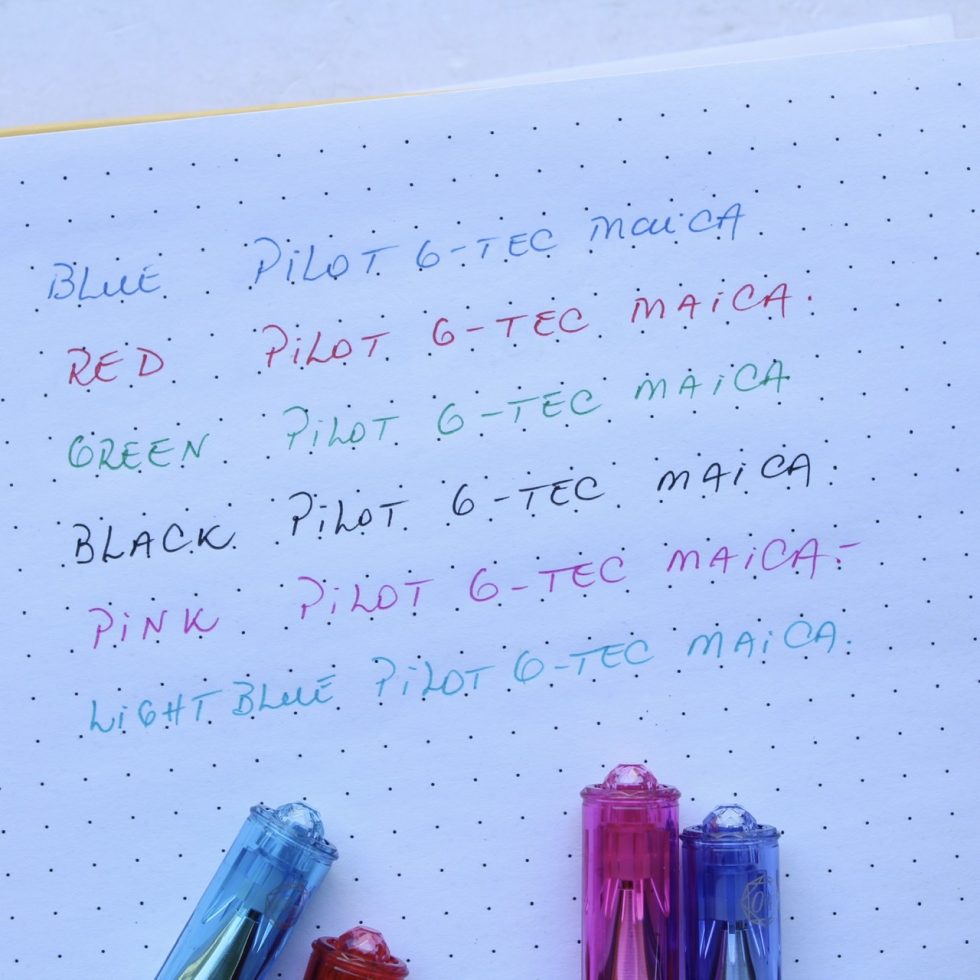 BLUE PiLOT G-TEC MAiCA
RED PiLOT G-TEC MAiCA.
GREEN PiLOT G-TEC MAiCA
BLACK PiLOT G-TEC MAiCA.
PiNK PiLOT G-TEC MAiCA.-
LiGHT BLUE PiLOT G-TEC MAiCA.